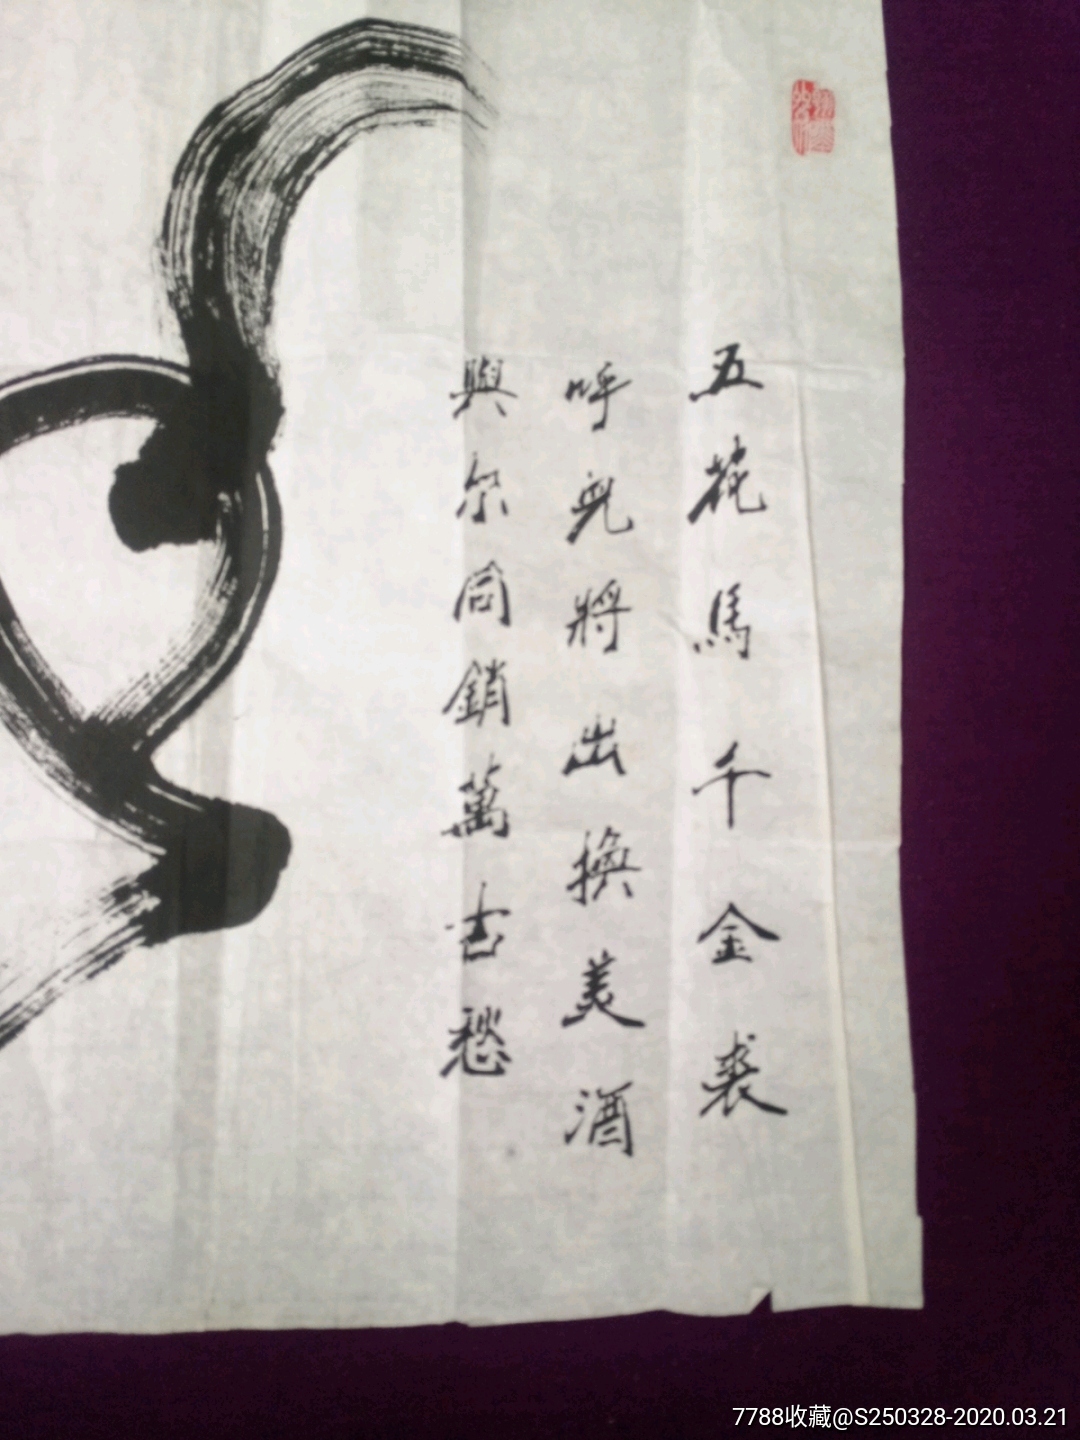 五花馬千金裘
呼兒將出換美酒
與尔同銷萬古愁
7788收藏@S250328-2020.03.21